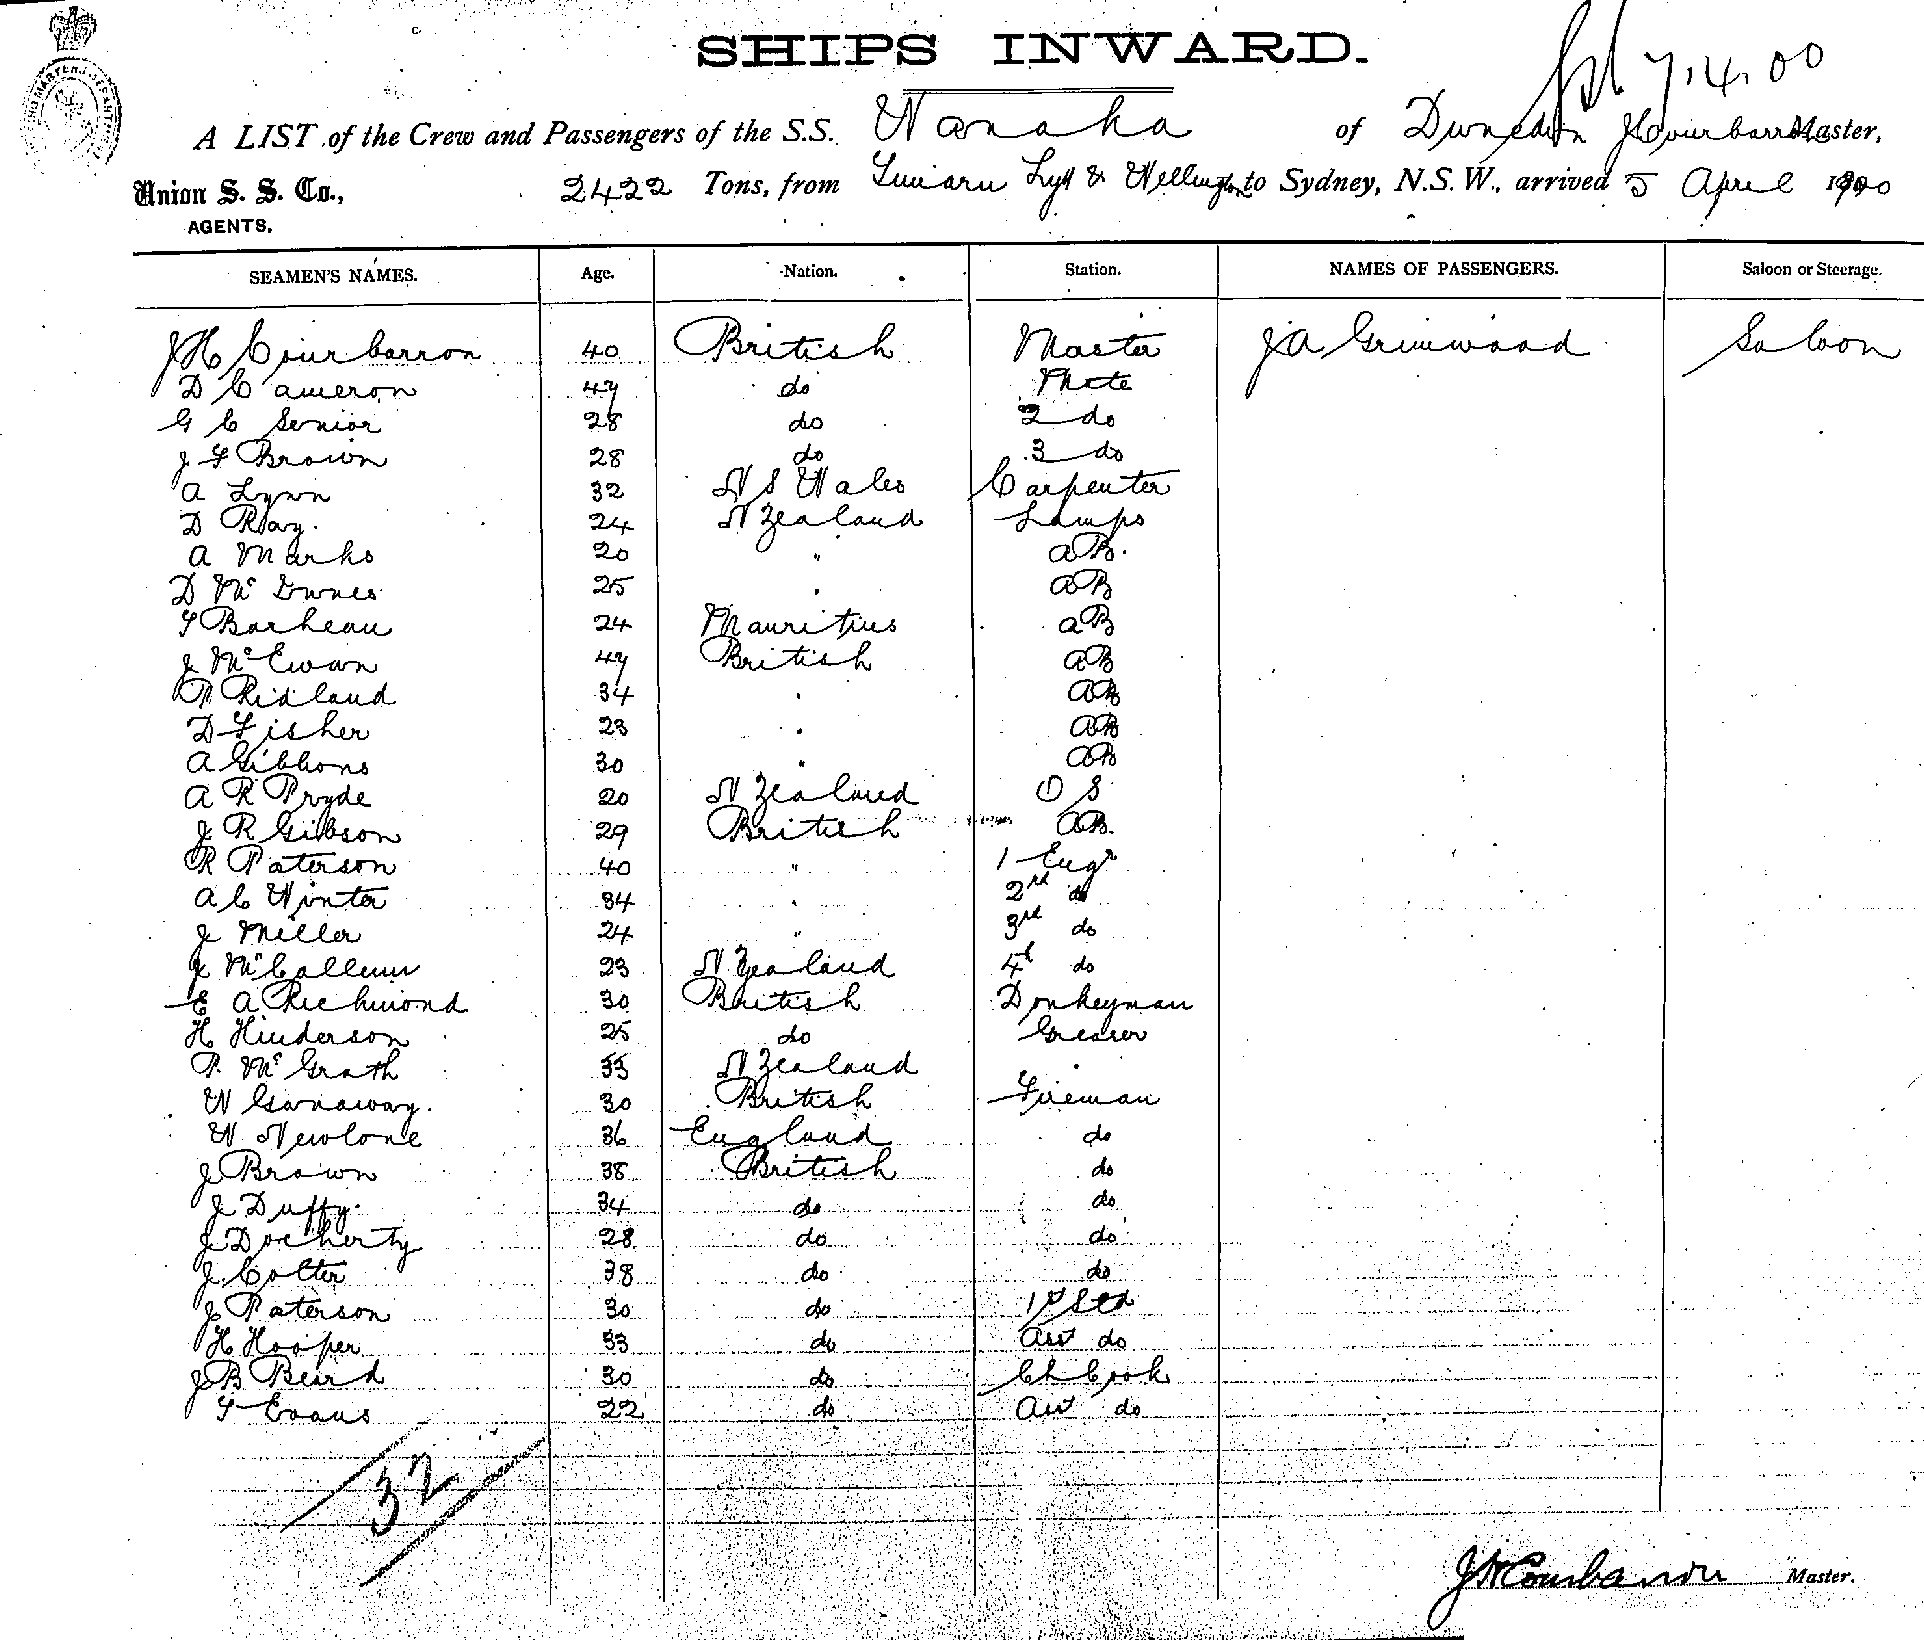 SHIPS INWARD.
7.4.00
A LIST of the Crew and Passengers of the S.S. Wanaka of Dunedin J H Courbarron Master,
Union S. S. Co., 2422 Tons, from Timaru Lytt & Wellington to Sydney, N.S.W., arrived 5 April 1900
AGENTS.
SEAMEN'S NAMES. Age. Nation. Station. NAMES OF PASSENGERS. Saloon or Steerage.
J H Courbarron 40 British Master J A Grimwood Saloon
D Cameron 47 do Mate
G C Senior 28 do 2 do
J F Brown 28 do 3 do
A Lynn 32 N S Wales Carpenter
D Ray. 24 N Zealand Lamps
A Marks 20 " AB.
D Mc Innes 25 " AB
F Barbeau 24 Mauritius AB
J McEwan 47 British AB
P Ridland 34 " AB
D Fisher 23 " AB
A Gibbons 30 " AB
A R Pryde 20 N Zealand O S
J R Gibson 29 British AB.
R Paterson 40 " 1 Engr
A C Winter 34 " 2rd do
J Miller 24 " 3rd do
J McCallum 23 N Zealand 4th do
E A Richmond 30 British Donkeyman
H Hinderson 25 do Greaser
P. Mc Grath 33 N Zealand
W Ganaway. 30 British Fireman
W Newlone 36 England do
J Brown 38 British do
J Duffy. 34 do do
J Docherty 28 do do
J Colter 38 do do
J Paterson 30 do 1st Std
H Hooper 33 do Asst do
J B Beard 30 do Ch Cook
F Evans 22 do Asst do
32
J H Courbarron Master.